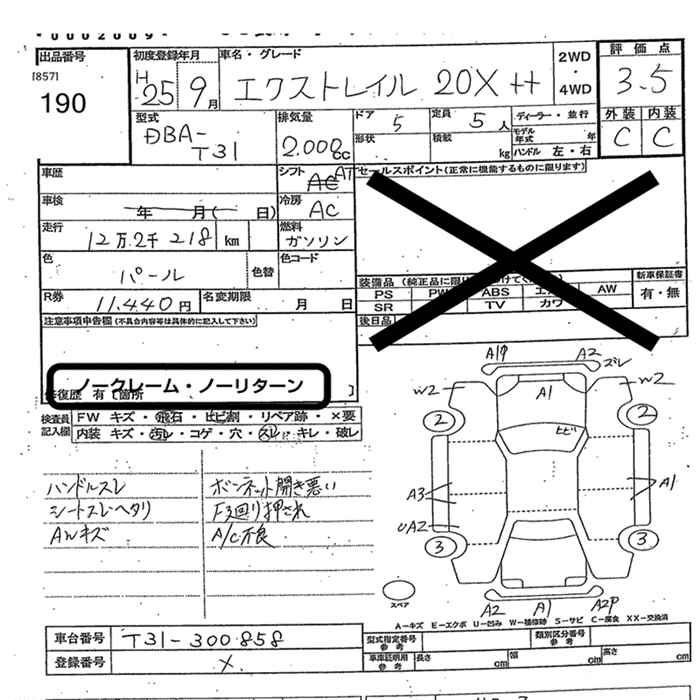 0002009
出品番号
[857]
190
初度登録年月
H25 9月
車名・グレード
エクストレイル 20X tt
2WD
・
4WD
評価点
3.5
外装 内装
C C
型式
DBA-
T31
排気量
2.000cc
ドア 5
形状
定員 5人
積載 kg
ディーラー・並行
モデル年式 年
ハンドル 左・右
車歴
シフト AT
セールスポイント(正常に機能するものに限ります)
車検 年 月( 日)
冷房 AC
走行 12万2千218 km
燃料 ガソリン
色 パール
色替
色コード
R券 11.440円
名変期限 月 日
装備品 (純正品に限り
PS PW ABS エア AW
SR TV カワ
後日品
新車保証書
有・無
注意事項申告欄(不具合内容等は具体的に記入して下さい)
ノークレーム・ノーリターン
修復歴 有 [箇所 ]
検査員記入欄
FW キズ・飛石・ヒビ割・リペア跡・×要
内装 キズ・汚レ・コゲ・穴・スレ・キレ・破レ
ハンドルスレ
シートスレヘタリ
AWキズ
ボンネット開き悪い
F廻り押され
A/C不良
A1P A2 ズレ
W2 A1 W2
2 2
ヒビ
A3 A1
UA2
3 3
A2 A1 A2P
スペア
A-キズ E-エクボ U-凹み W-補修跡 S-サビ C-腐食 XX-交換済
車台番号 T31-300858
登録番号 X
型式指定番号 参考
類別区分番号 参考
車庫証明用 参考
長さ cm 幅 cm 高さ cm